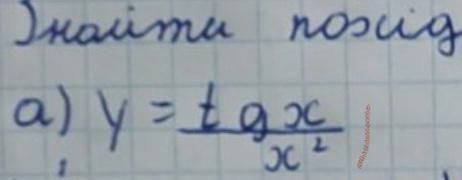 Знайти похід
а) y = tgx / x²